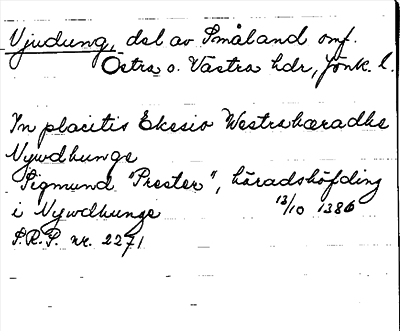 Njudung, del av Småland omf.
Östra o. Västra hdr, Jönk. l.
In placitis Ekesio Westrahæradhe
Nywdhungs
Sigmund "Prester", häradshöfding
i Nywdhunge 13/10 1386
S.R.P. nr. 2271